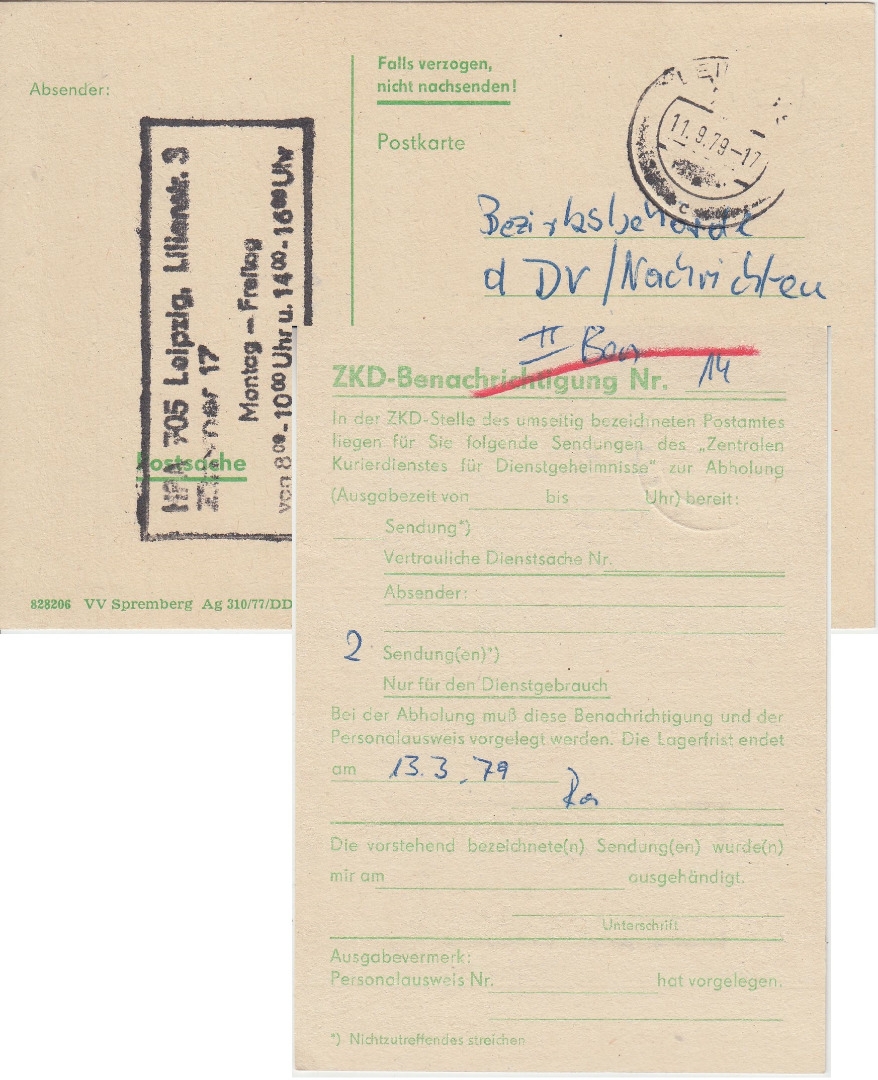 Absender:
Falls verzogen,
nicht nachsenden!
Postkarte
11.9.79-17
c
Bezirksbehörde
d DV/Nachrichten
705 Leipzig, Lilienstr. 3
17
Montag - Freitag
von 8⁰⁰-10⁰⁰ Uhr u. 14⁰⁰-16⁰⁰ Uhr
Postsache
828206 VV Spremberg Ag 310/77/DD
II
ZKD-Benachrichtigung Nr. 14
In der ZKD-Stelle des umseitig bezeichneten Postamtes
liegen für Sie folgende Sendungen des „Zentralen
Kurierdienstes für Dienstgeheimnisse“ zur Abholung
(Ausgabezeit von bis Uhr) bereit:
Sendung*)
Vertrauliche Dienstsache Nr.
Absender:
2 Sendung(en)*)
Nur für den Dienstgebrauch
Bei der Abholung muß diese Benachrichtigung und der
Personalausweis vorgelegt werden. Die Lagerfrist endet
am 13.3.79
Die vorstehend bezeichnete(n) Sendung(en) wurde(n)
mir am ausgehändigt.
Unterschrift
Ausgabevermerk:
Personalausweis Nr. hat vorgelegen.
*) Nichtzutreffendes streichen